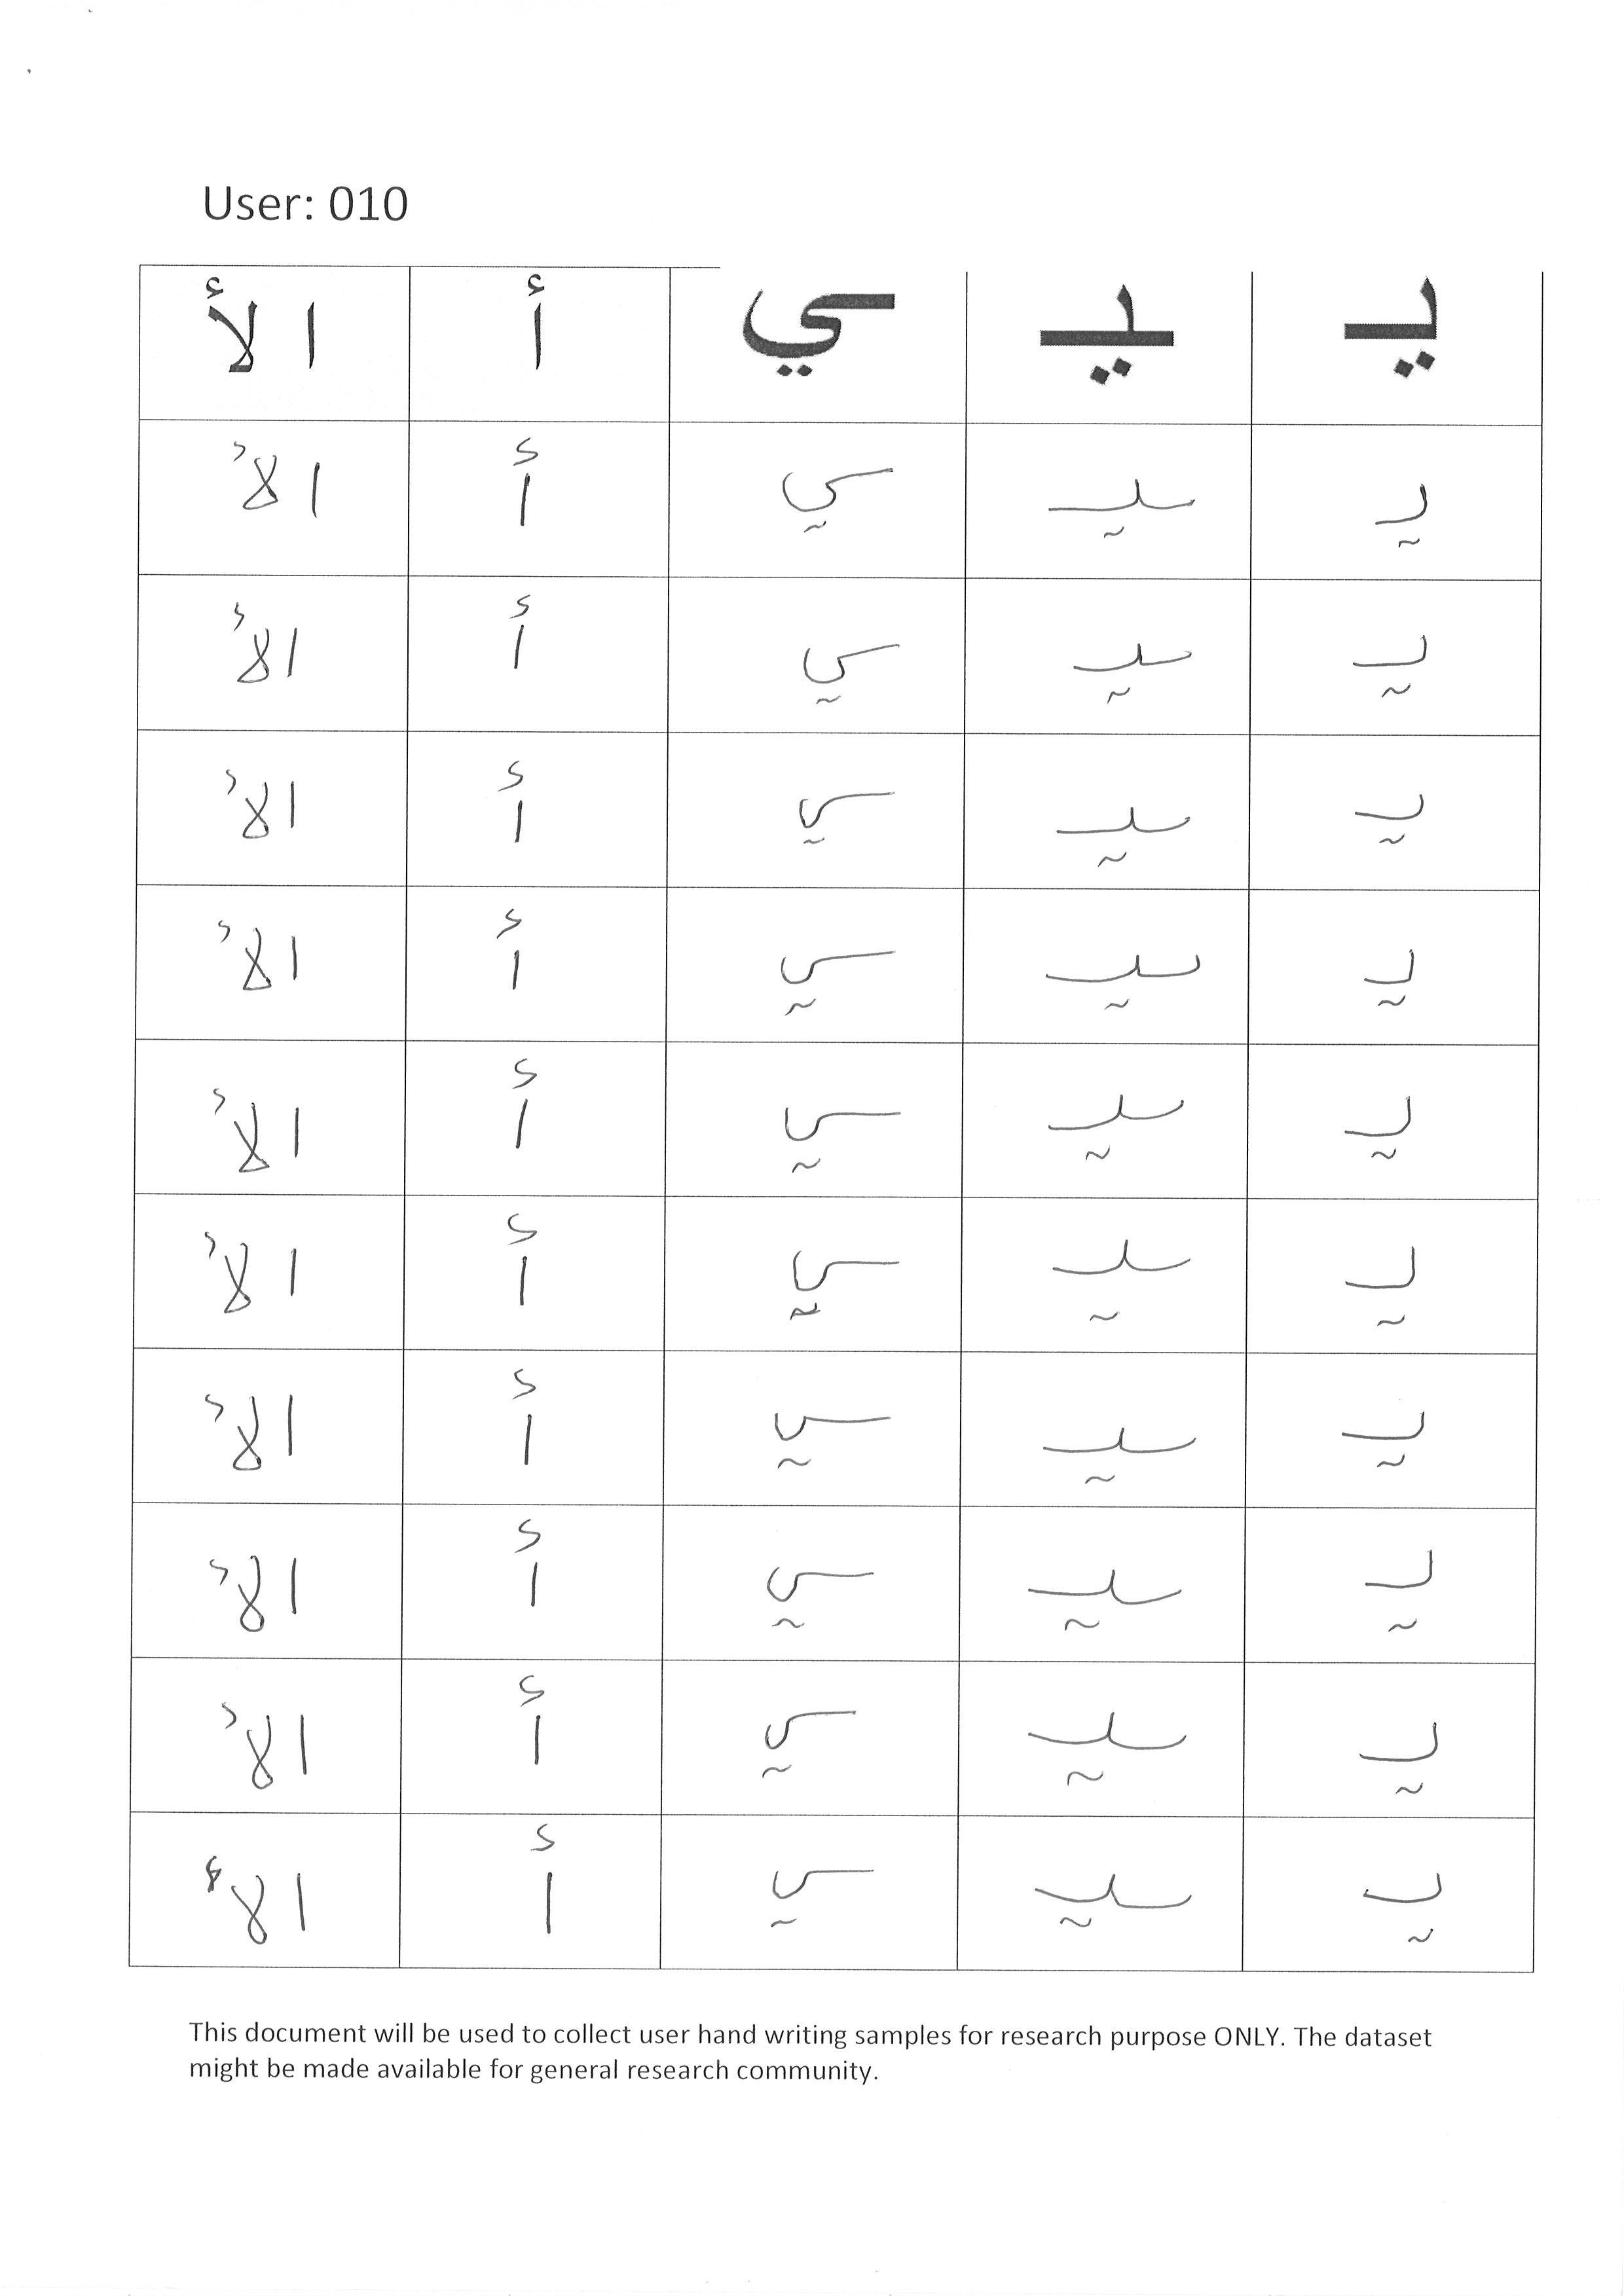 User: 010
يـ ـيـ ـي أ الأ
يـ ـيـ ـي أ الأ
يـ ـيـ ـي أ الأ
يـ ـيـ ـي أ الأ
يـ ـيـ ـي أ الأ
يـ ـيـ ـي أ الأ
يـ ـيـ ـي أ الأ
يـ ـيـ ـي أ الأ
يـ ـيـ ـي أ الأ
يـ ـيـ ـي أ الأ
يـ ـيـ ـي أ الأ
This document will be used to collect user hand writing samples for research purpose ONLY. The dataset
might be made available for general research community.